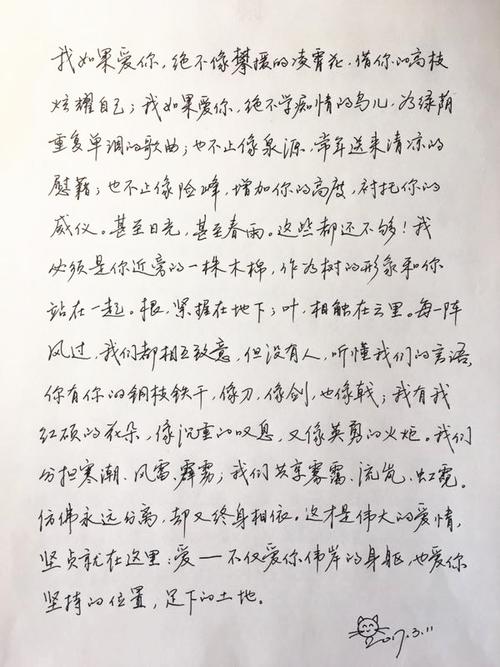 我如果爱你，绝不像攀援的凌霄花，借你的高枝
炫耀自己；我如果爱你，绝不学痴情的鸟儿，为绿荫
重复单调的歌曲；也不止像泉源，常年送来清凉的
慰藉；也不止像险峰，增加你的高度，衬托你的
威仪。甚至日光，甚至春雨。这些都还不够！我
必须是你近旁的一株木棉，作为树的形象和你
站在一起。根，紧握在地下；叶，相触在云里。每一阵
风过，我们都相互致意，但没有人，听懂我们的言语，
你有你的铜枝铁干，像刀，像剑，也像戟；我有我
红硕的花朵，像沉重的叹息，又像英勇的火炬。我们
分担寒潮、风雷、霹雳；我们共享雾霭、流岚、虹霓。
仿佛永远分离，却又终身相依。这才是伟大的爱情，
坚贞就在这里：爱——不仅爱你伟岸的身躯，也爱你
坚持的位置，足下的土地。
2017.3.11